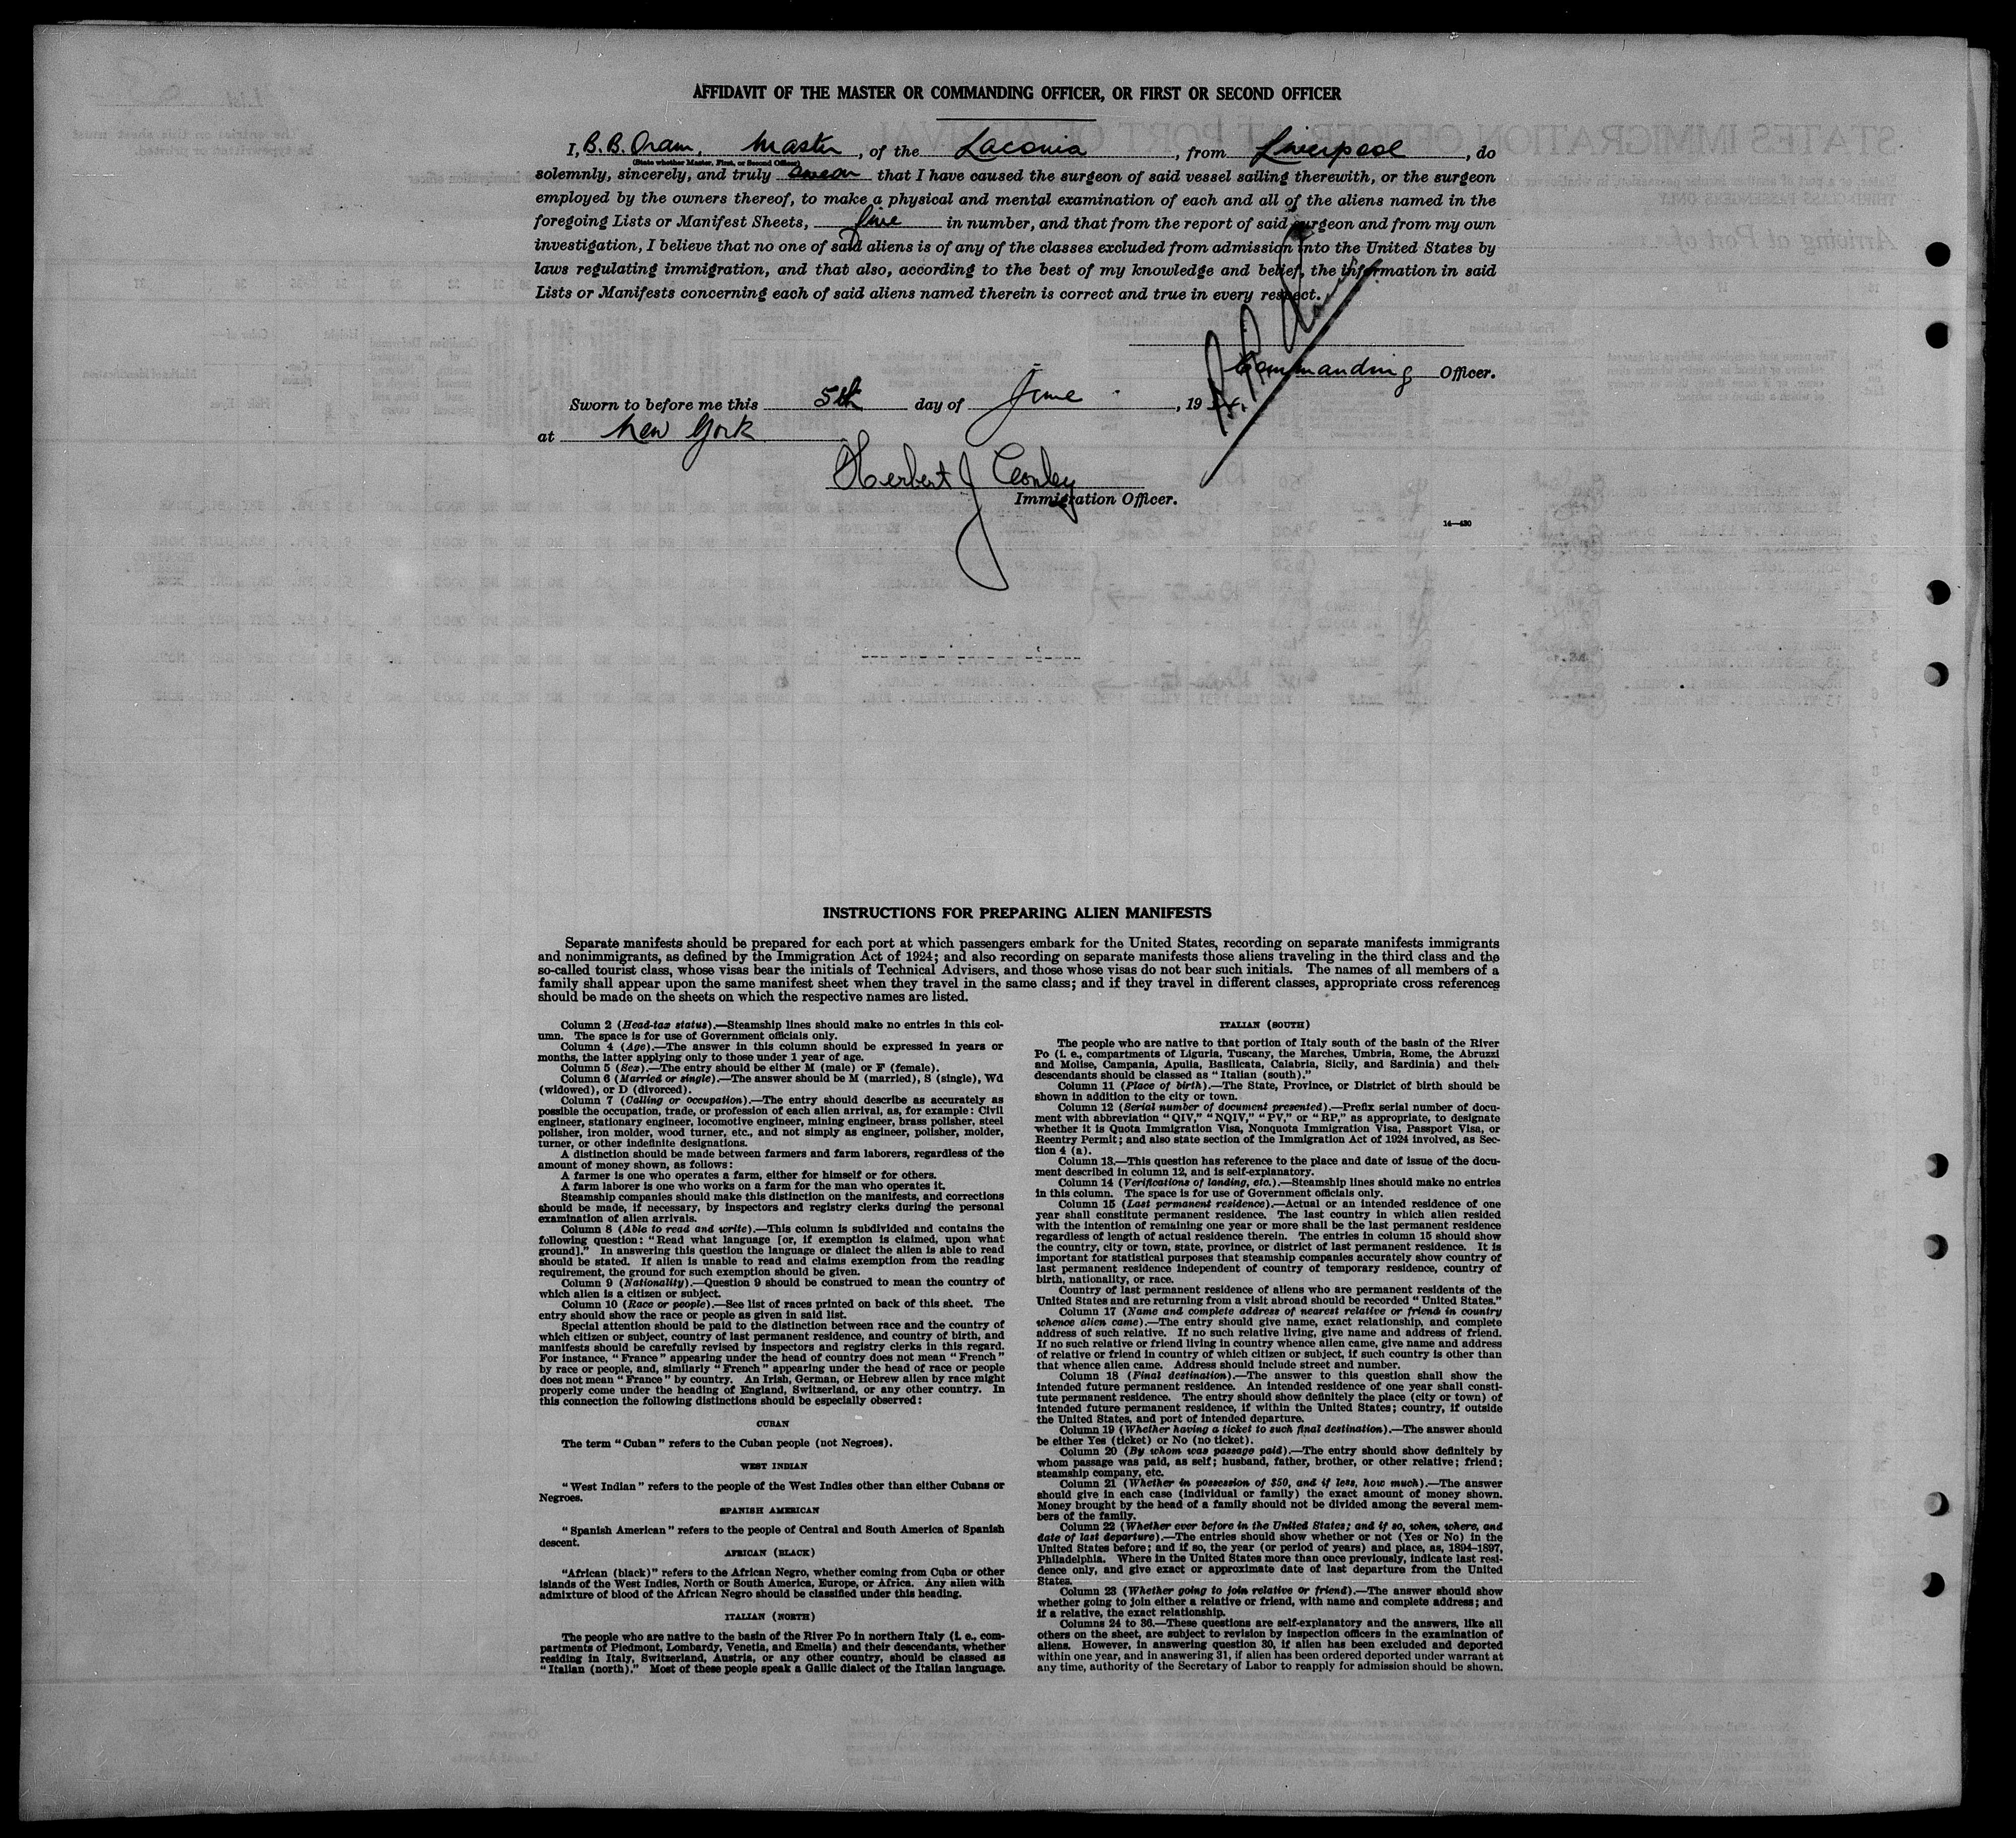 AFFIDAVIT OF THE MASTER OR COMMANDING OFFICER, OR FIRST OR SECOND OFFICER
I, B. B. Oram, Master, of the Laconia, from Liverpool, do
(State whether Master, First, or Second Officer)
solemnly, sincerely, and truly swear that I have caused the surgeon of said vessel sailing therewith, or the surgeon
employed by the owners thereof, to make a physical and mental examination of each and all of the aliens named in the
foregoing Lists or Manifest Sheets, five in number, and that from the report of said surgeon and from my own
investigation, I believe that no one of said aliens is of any of the classes excluded from admission into the United States by
laws regulating immigration, and that also, according to the best of my knowledge and belief, the information in said
Lists or Manifests concerning each of said aliens named therein is correct and true in every respect.
Commanding Officer.
Sworn to before me this 5th day of June, 19
at New York
Herbert J
Immigration Officer.
14—430
INSTRUCTIONS FOR PREPARING ALIEN MANIFESTS
Separate manifests should be prepared for each port at which passengers embark for the United States, recording on separate manifests immigrants
and nonimmigrants, as defined by the Immigration Act of 1924; and also recording on separate manifests those aliens traveling in the third class and the
so-called tourist class, whose visas bear the initials of Technical Advisers, and those whose visas do not bear such initials. The names of all members of a
family shall appear upon the same manifest sheet when they travel in the same class; and if they travel in different classes, appropriate cross references
should be made on the sheets on which the respective names are listed.
Column 2 (Head-tax status).—Steamship lines should make no entries in this col-
umn. The space is for use of Government officials only.
Column 4 (Age).—The answer in this column should be expressed in years or
months, the latter applying only to those under 1 year of age.
Column 5 (Sex).—The entry should be either M (male) or F (female).
Column 6 (Married or single).—The answer should be M (married), S (single), Wd
(widowed), or D (divorced).
Column 7 (Calling or occupation).—The entry should describe as accurately as
possible the occupation, trade, or profession of each alien arrival, as, for example: Civil
engineer, stationary engineer, locomotive engineer, mining engineer, brass polisher, steel
polisher, iron molder, wood turner, etc., and not simply as engineer, polisher, molder,
turner, or other indefinite designations.
A distinction should be made between farmers and farm laborers, regardless of the
amount of money shown, as follows:
A farmer is one who operates a farm, either for himself or for others.
A farm laborer is one who works on a farm for the man who operates it.
Steamship companies should make this distinction on the manifests, and corrections
should be made, if necessary, by inspectors and registry clerks during the personal
examination of alien arrivals.
Column 8 (Able to read and write).—This column is subdivided and contains the
following question: "Read what language [or, if exemption is claimed, upon what
ground]." In answering this question the language or dialect the alien is able to read
should be stated. If alien is unable to read and claims exemption from the reading
requirement, the ground for such exemption should be given.
Column 9 (Nationality).—Question 9 should be construed to mean the country of
which alien is a citizen or subject.
Column 10 (Race or people).—See list of races printed on back of this sheet. The
entry should show the race or people as given in said list.
Special attention should be paid to the distinction between race and the country of
which citizen or subject, country of last permanent residence, and country of birth, and
manifests should be carefully revised by inspectors and registry clerks in this regard.
For instance, "France" appearing under the head of country does not mean "French"
by race or people, and, similarly "French" appearing under the head of race or people
does not mean "France" by country. An Irish, German, or Hebrew alien by race might
properly come under the heading of England, Switzerland, or any other country. In
this connection the following distinctions should be especially observed:
CUBAN
The term "Cuban" refers to the Cuban people (not Negroes).
WEST INDIAN
"West Indian" refers to the people of the West Indies other than either Cubans or
Negroes.
SPANISH AMERICAN
"Spanish American" refers to the people of Central and South America of Spanish
descent.
AFRICAN (BLACK)
"African (black)" refers to the African Negro, whether coming from Cuba or other
islands of the West Indies, North or South America, Europe, or Africa. Any alien with
admixture of blood of the African Negro should be classified under this heading.
ITALIAN (NORTH)
The people who are native to the basin of the River Po in northern Italy (i. e., com-
partments of Piedmont, Lombardy, Venetia, and Emelia) and their descendants, whether
residing in Italy, Switzerland, Austria, or any other country, should be classed as
"Italian (north)." Most of these people speak a Gallic dialect of the Italian language.
ITALIAN (SOUTH)
The people who are native to that portion of Italy south of the basin of the River
Po (i. e., compartments of Liguria, Tuscany, the Marches, Umbria, Rome, the Abruzzi
and Molise, Campania, Apulia, Basilicata, Calabria, Sicily, and Sardinia) and their
descendants should be classed as "Italian (south)."
Column 11 (Place of birth).—The State, Province, or District of birth should be
shown in addition to the city or town.
Column 12 (Serial number of document presented).—Prefix serial number of docu-
ment with abbreviation "QIV," "NQIV," "PV," or "RP," as appropriate, to designate
whether it is Quota Immigration Visa, Nonquota Immigration Visa, Passport Visa, or
Reentry Permit; and also state section of the Immigration Act of 1924 involved, as Sec-
tion 4 (a).
Column 13.—This question has reference to the place and date of issue of the docu-
ment described in column 12, and is self-explanatory.
Column 14 (Verifications of landing, etc.).—Steamship lines should make no entries
in this column. The space is for use of Government officials only.
Column 15 (Last permanent residence).—Actual or an intended residence of one
year shall constitute permanent residence. The last country in which alien resided
with the intention of remaining one year or more shall be the last permanent residence
regardless of length of actual residence therein. The entries in column 15 should show
the country, city or town, state, province, or district of last permanent residence. It is
important for statistical purposes that steamship companies accurately show country of
last permanent residence independent of country of temporary residence, country of
birth, nationality, or race.
Country of last permanent residence of aliens who are permanent residents of the
United States and are returning from a visit abroad should be recorded "United States."
Column 17 (Name and complete address of nearest relative or friend in country
whence alien came).—The entry should give name, exact relationship, and complete
address of such relative. If no such relative living, give name and address of friend.
If no such relative or friend living in country whence alien came, give name and address
of relative or friend in country of which citizen or subject, if such country is other than
that whence alien came. Address should include street and number.
Column 18 (Final destination).—The answer to this question shall show the
intended future permanent residence. An intended residence of one year shall consti-
tute permanent residence. The entry should show definitely the place (city or town) of
intended future permanent residence, if within the United States; country, if outside
the United States, and port of intended departure.
Column 19 (Whether having a ticket to such final destination).—The answer should
be either Yes (ticket) or No (no ticket).
Column 20 (By whom was passage paid).—The entry should show definitely by
whom passage was paid, as self; husband, father, brother, or other relative; friend;
steamship company, etc.
Column 21 (Whether in possession of $50, and if less, how much).—The answer
should give in each case (individual or family) the exact amount of money shown.
Money brought by the head of a family should not be divided among the several mem-
bers of the family.
Column 22 (Whether ever before in the United States; and if so, when, where, and
date of last departure).—The entries should show whether or not (Yes or No) in the
United States before; and if so, the year (or period of years) and place, as, 1894–1897,
Philadelphia. Where in the United States more than once previously, indicate last resi-
dence only, and give exact or approximate date of last departure from the United
States.
Column 23 (Whether going to join relative or friend).—The answer should show
whether going to join either a relative or friend, with name and complete address; and
if a relative, the exact relationship.
Columns 24 to 36.—These questions are self-explanatory and the answers, like all
others on the sheet, are subject to revision by inspection officers in the examination of
aliens. However, in answering question 30, if alien has been excluded and deported
within one year, and in answering 31, if alien has been ordered deported under warrant at
any time, authority of the Secretary of Labor to reapply for admission should be shown.